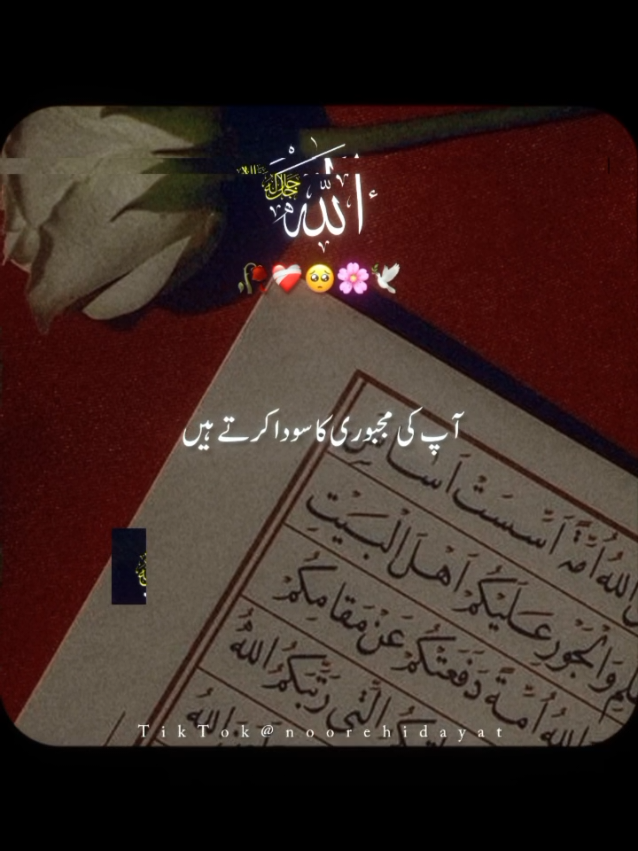 الله جل جلاله
🥀❤️‍🩹🥺🌸🕊️
آپ کی مجبوری کا سودا کرتے ہیں
اللهُ أُمَّةً أَسَّسَتْ أَسَاسَ
وَالْجَوْرِ عَلَيْكُمْ أَهْلَ الْبَيْتِ
اللهُ أُمَّةً دَفَعَتْكُمْ عَنْ مَقَامِكُمْ
الَّتِي رَتَّبَكُمُ اللهُ
TikTok@noorehidayat